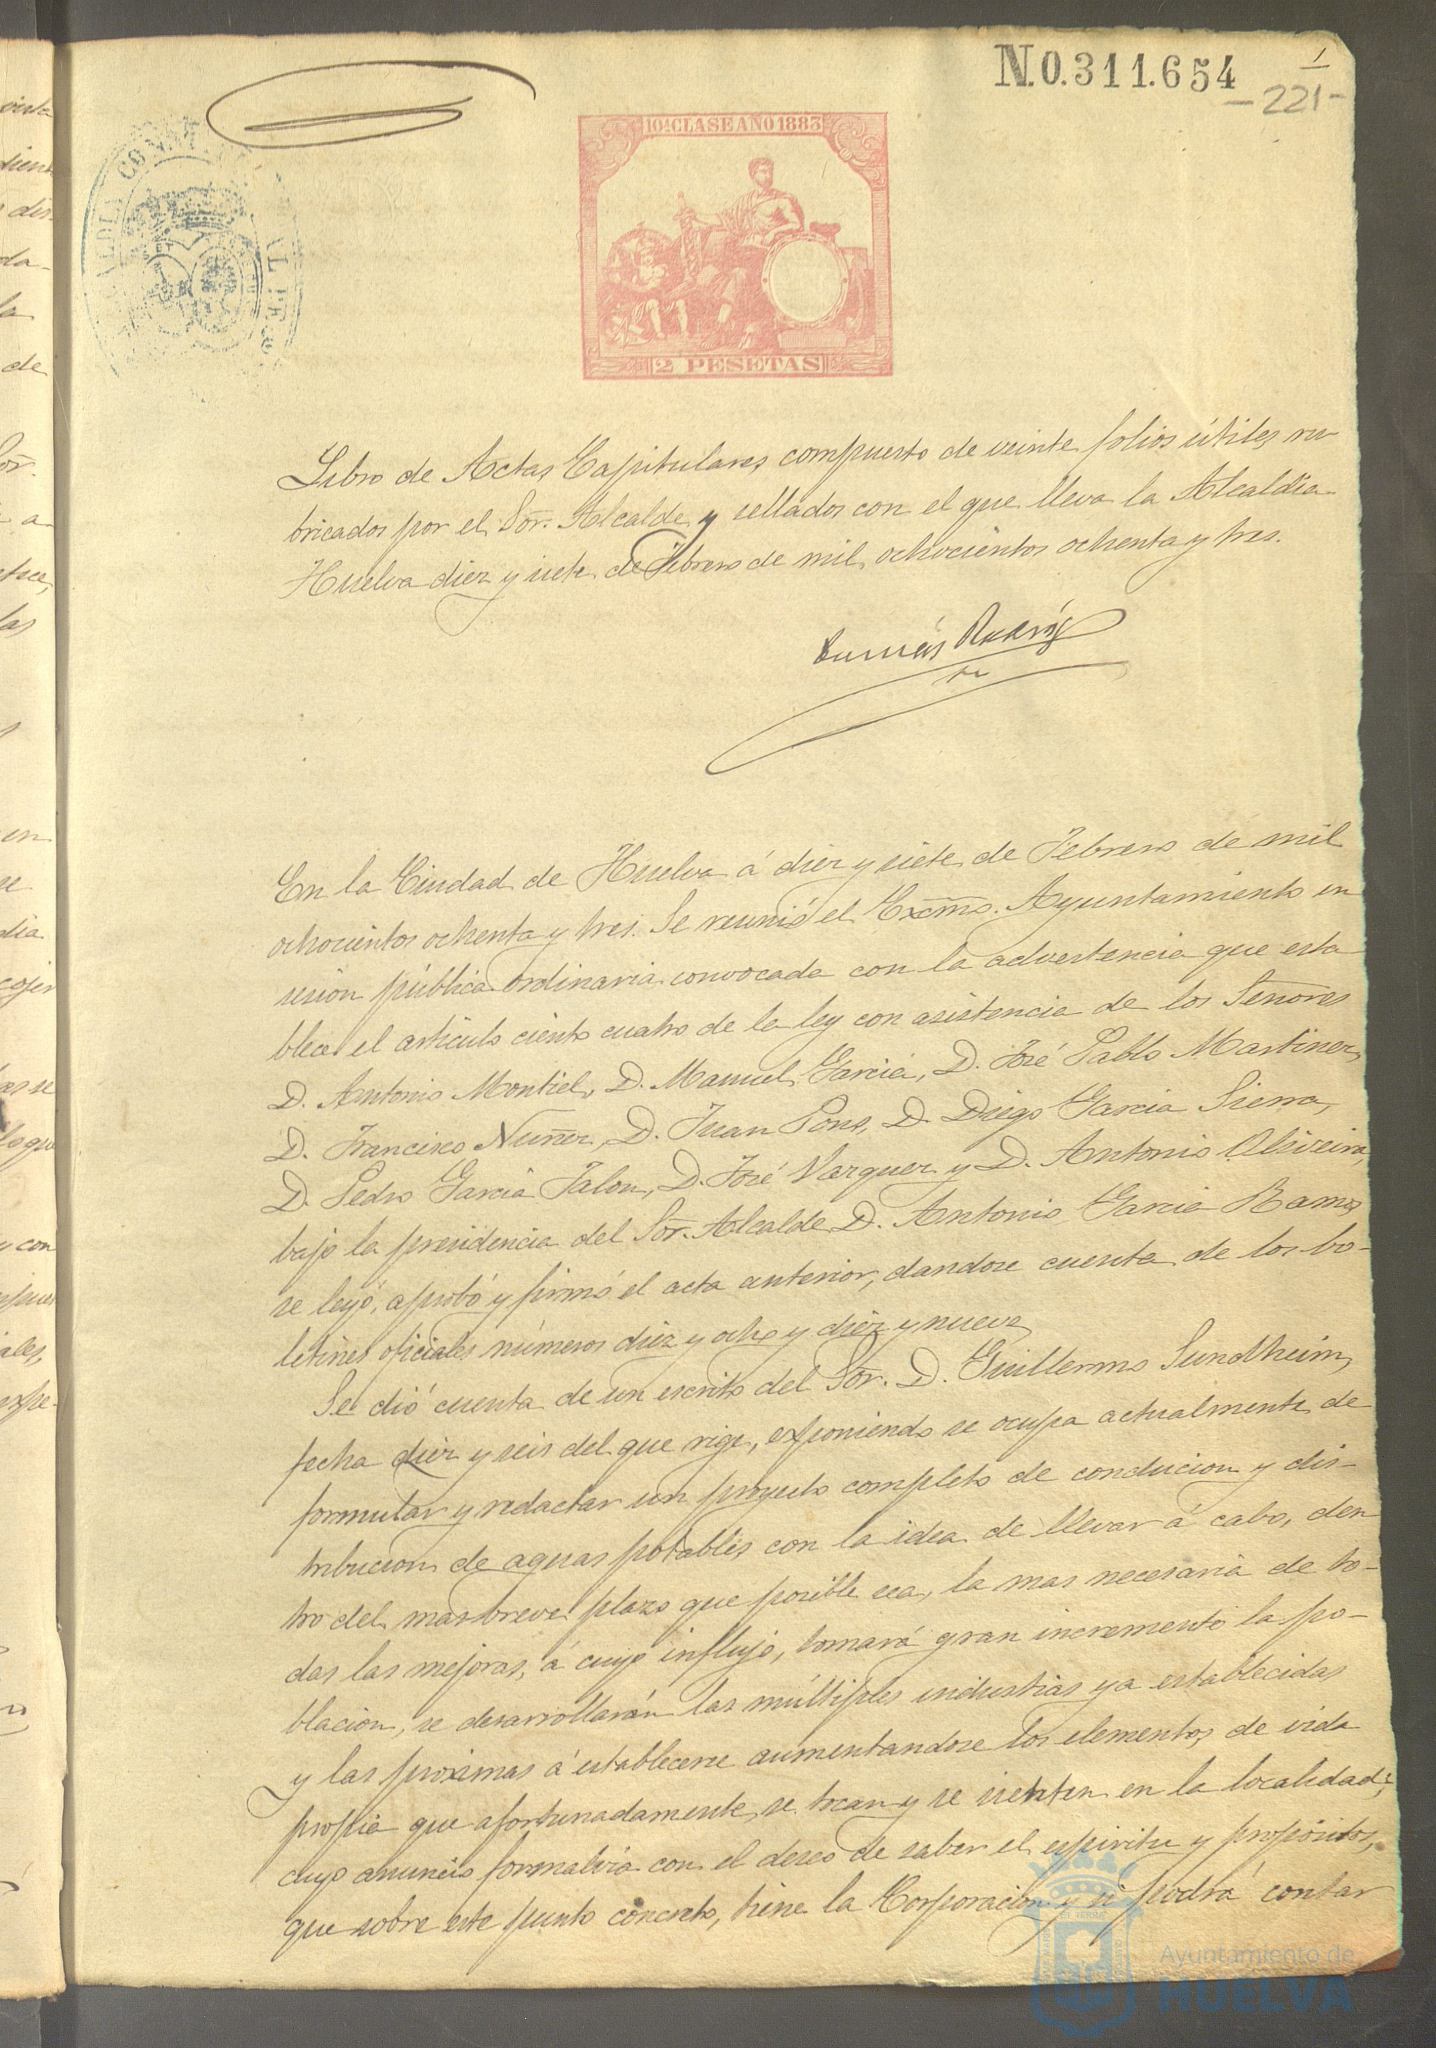 N.0.311.654
1
-221-
10ª CLASE AÑO 1883
2 PESETAS
Libro de Actas Capitulares compuesto de veinte folios útiles, ru
bricados por el Sor. Alcalde y sellados con el que lleva la Alcaldia
Huelva diez y siete de Febrero de mil ochocientos ochenta y tres.
En la Ciudad de Huelva á diez y siete de Febrero de mil
ochocientos ochenta y tres. Se reunió el Excmo. Ayuntamiento en
sesion pública ordinaria convocada con la advertencia que esta
blece el artículo ciento cuatro de la ley con asistencia de los Señores
D. Antonio Montiel, D. Manuel Garcia, D. José Pablo Martinez,
D. Francisco Nuñez, D. Juan Pons, D. Diego Garcia Sierra,
D. Pedro Garcia Jalon, D. José Vazquez y D. Antonio Oliveira,
bajo la presidencia del Sor. Alcalde D. Antonio Garcia Ramos,
se leyó, aprobó y firmó el acta anterior, dandose cuenta de los bo-
letines oficiales números diez y ocho y diez y nueve
Se dió cuenta de un escrito del Sor. D. Guillermo Sundheim,
fecha diez y seis del que rige, exponiendo se ocupa actualmente de
formular y redactar un proyecto completo de conducion y dis-
tribucion de aguas potables, con la idea de llevar á cabo, den
tro del mas breve plazo que posible sea, la mas necesaria de to-
das las mejoras, á cuyo influjo, tomará gran incremento la po-
blacion, se desarrollarán las múltiples industrias ya establecidas
y las proximas á establecerse aumentandose los elementos de vida
propia que afortunadamente se tocan y se sienten en la localidad;
cuyo anuncio formaliza con el deseo de saber el espiritu y propósitos,
que sobre este punto concreto, tiene la Corporacion y si podrá contar
Ayuntamiento de
HUELVA